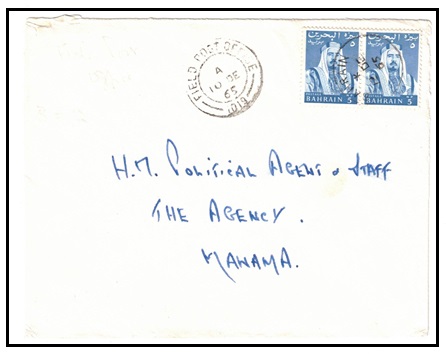 FIELD POST OFFICE
A
10 DE
65
1019
BAHRAIN 5
BAHRAIN 5
H.M. POLITICAL AGENT & STAFF
THE AGENCY.
MANAMA.